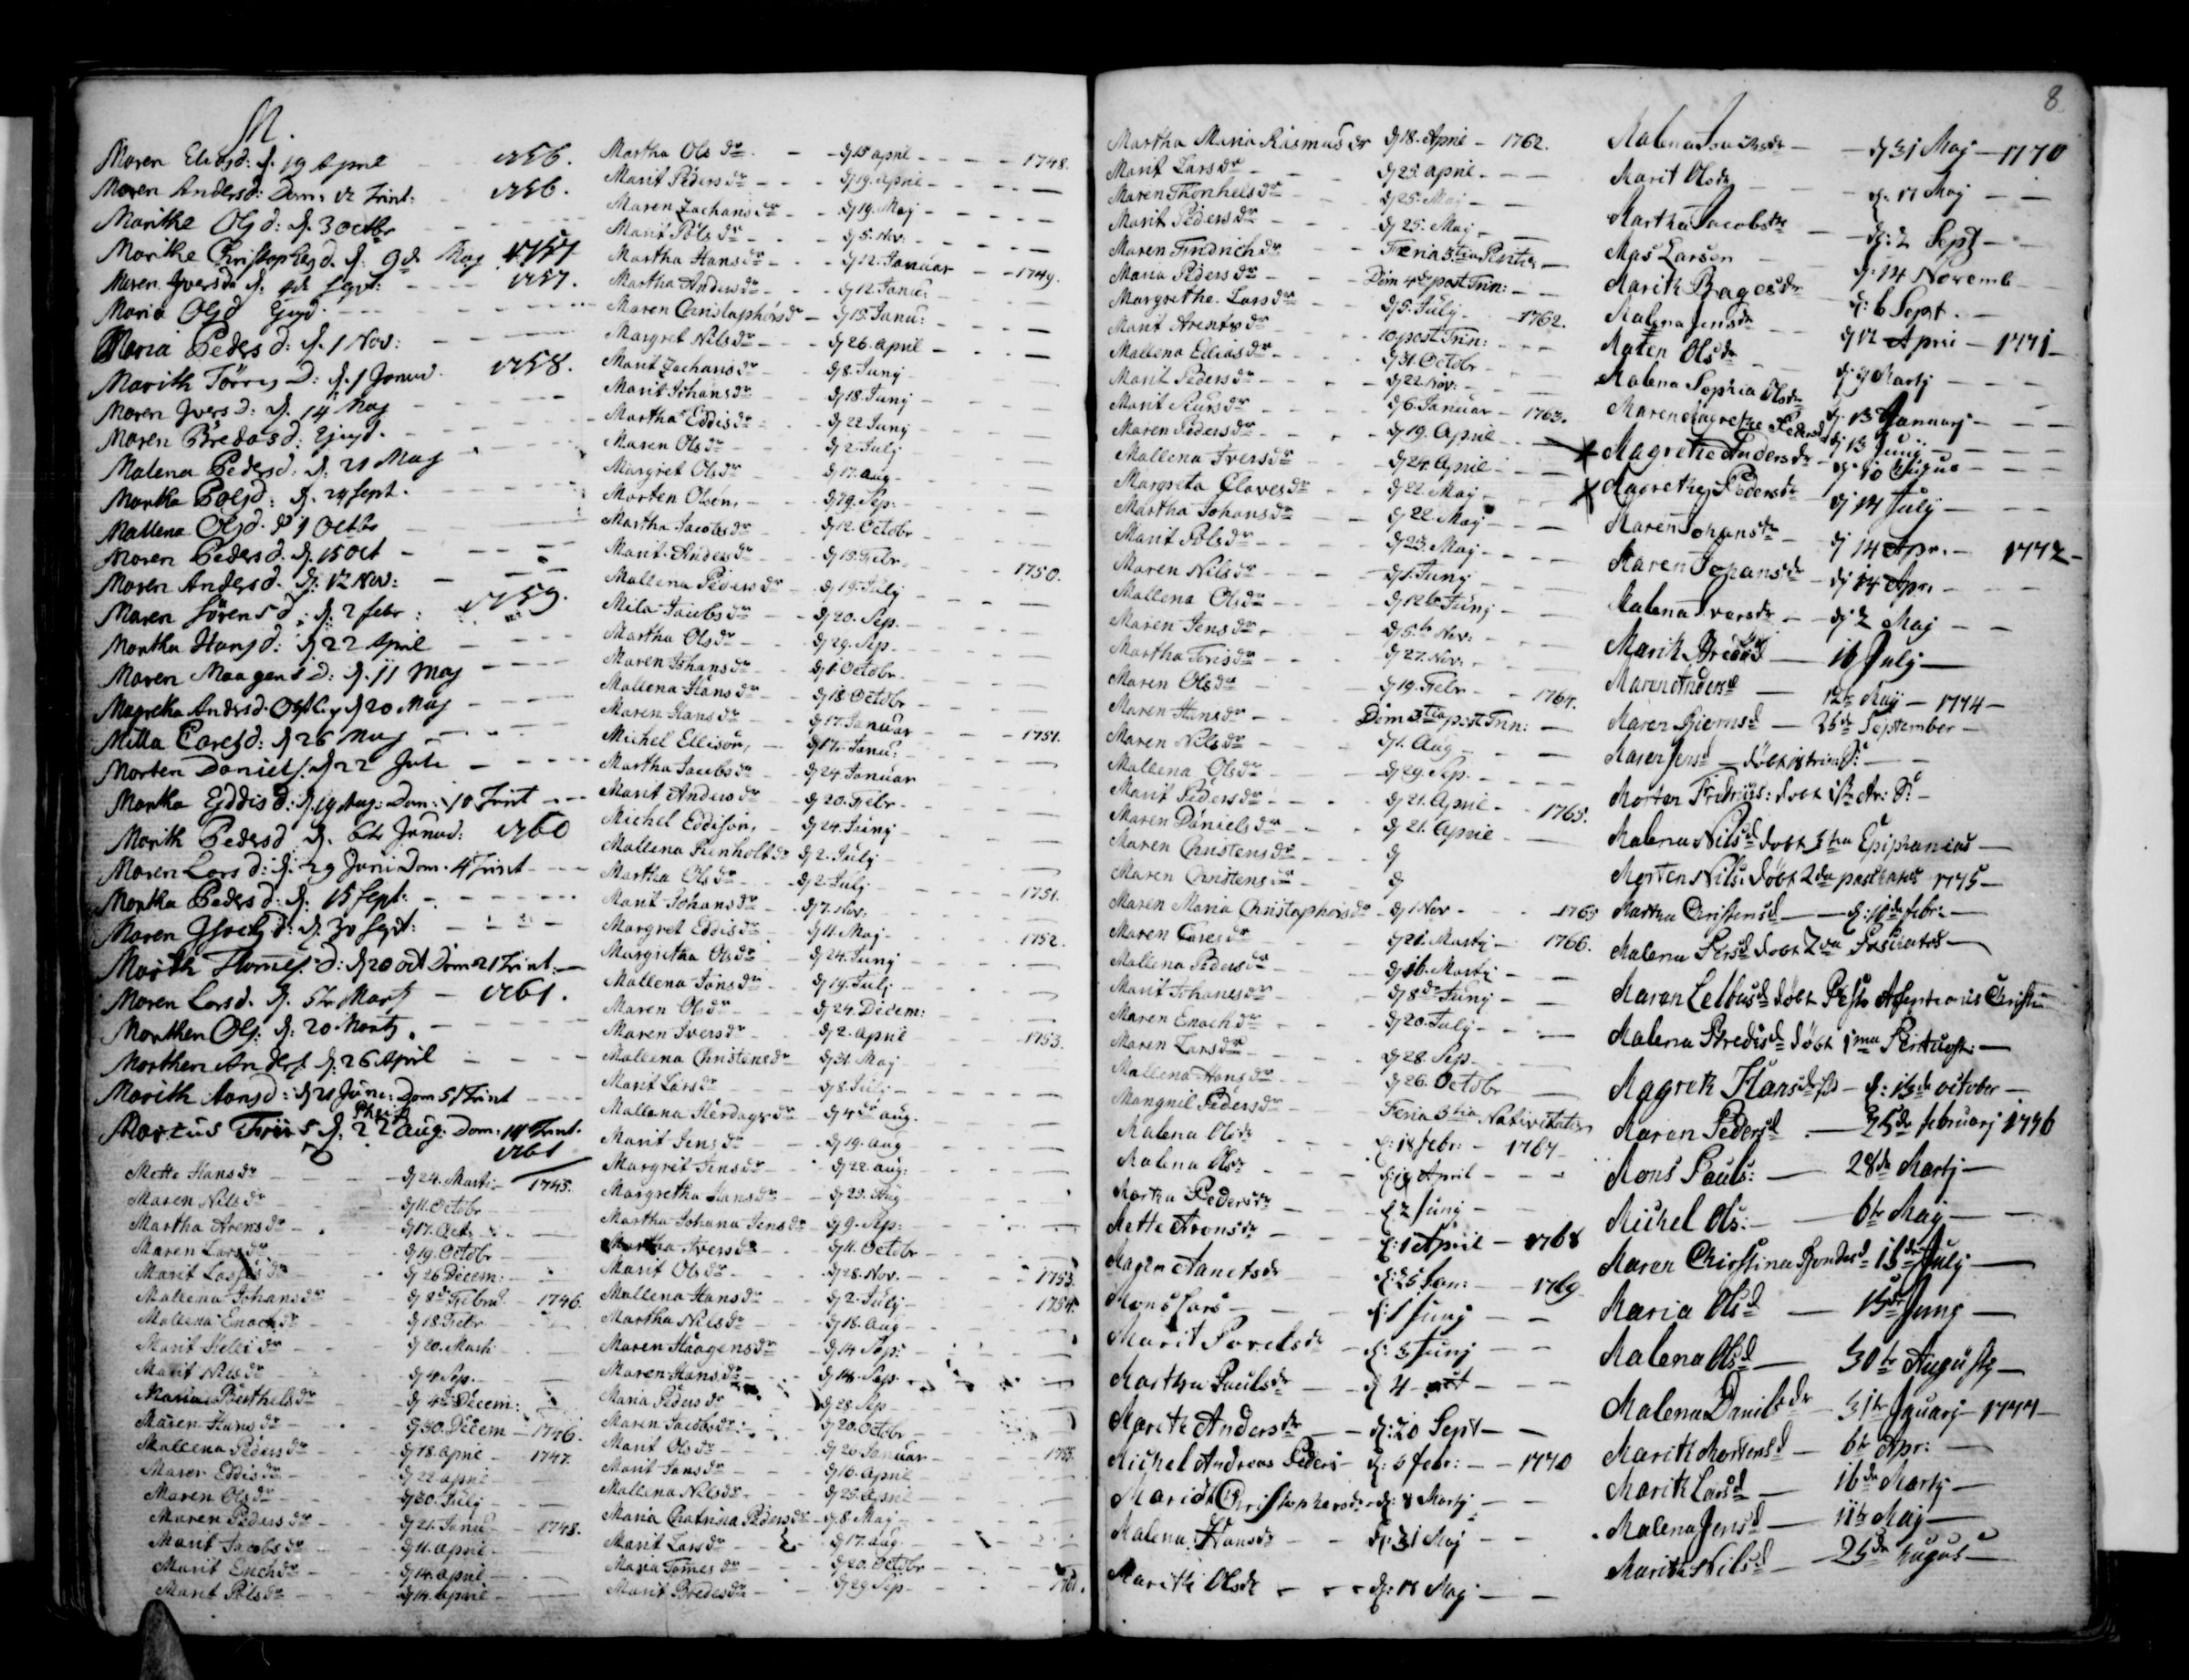 M.
Maren Eliasd: d. 19 April - 1756.
Maren Andersd: Dom: 12 Trint: 1756.
Marithe Olsd: d. 3 octbr - - -
Marithe Christophersd. d. 9de May 1757
Maren Iversd d. Sept: - - - 1757.
Maria Olsd Ejusd. - - -
Maria Pedersd: d. 1 Nov: - - -
Marith Törrisd: d. 1 Januar. 1758.
Maren Iversd: d. 14 Maj - - -
Maren Bredesd: Ejusd. - - -
Malena Pedersd. d. 21 Maj - - -
Martha Polsd: d. 24 Sept. - - -
Mallena Olsd. d 1 Octbr - - -
Maren Pedersd. d. 15 oct - - -
Maren Andersd. d. 12 Nov: - - -
Maren Sörensd: d. 2 febr: 1759.
Martha Hansd: d 22 April - - -
Maren Maagensd: d. 11 Maj - - -
Magretha Andersd. d 20 Maj - - -
Milla Carelsd: d 26 Maj - - -
Morten Daniels. d 22 Juli - - -
Martha Eddisd: d. 19 Aug: Dom: 10 Trint - - -
Marith Pedersd d. 6te Januar: 1760
Maren Larsd: d. 29 Juni Dom. 4 Trint - - -
Martha Pedersd: d: 15 Sept: - - -
Maren d: d. 30 Sept: - - -
Marith Thomesd: d 20 oct Dom 21 Trint: -
Maren Larsd. d. 5te Martj - 1761.
Morthen Ols: d: 20 Martj. - - -
Morthen Anders d: 26 April - - -
Marith Hansd: d 21 Juni: Dom 5 Trint - - -
Marcus Friis d. 22 Aug: Dom: 14 Trint.
1761
Mette Hansdr - - d 24. Martj - 1745.
Maren Nilsdr - - d 11. Octobr - -
Martha Arensdr - - d 17. Oct: - -
Maren Larsdr - - d 19. Octobr - -
Marit Lassesdr - - d 26 Decem: - -
Mallena Johansdr - - d 8de Febru. - 1746.
Mallena Enochdr - - d 18. Febr - -
Marit dr - - d 20. Mart: - -
Marit Nilsdr - - d 4. Sep. - -
Maria Berthelsdr - - d 4de Decem: - -
Maren Hansdr - - d 30. Decem - 1746.
Mallena Pedersdr - - d 18. April - 1747.
Maren Eddisdr - - d 22 april - -
Maren Olsdr - - d 30. Julj - -
Maren Pedersdr - - d 21. Janu - 1748.
Marit Jacobsdr - - d 11. april - -
Marit Enochdr - - d 14. april - -
Marit Polsdr - - d 14. April - -
Martha Olsdr - - d 15 april - - 1748.
Marit Pedersdr - - d 19. April - -
Maren Zachariadr - - d 19. Maj - -
Marit Polsdr - - d 5. Nov: - -
Martha Hansdr - - d 12. Januar - 1749.
Martha Andersdr - - d 12. Janu: - -
Maren Christophersdr - d 15. Janu: - -
Margret Nilsdr - - d 26. april - -
Marit Zachariasdr - - d 8. Junj - -
Marit Johansdr - - d 18. Junj - -
Martha Eddisdr - - d 22 Junj - -
Maren Olsdr - - d 2. Julj - -
Margret Olsdr - - d 17. aug - -
Morten Olsen, - - d 29. Sep: - -
Martha Jacobsdr - - d 12. Octobr - -
Marit Andersdr - - d 15. Febr. - 1750.
Mallena Pedersdr - d 19. Julj - -
Mila Jacobsdr - - d 20. Sep. - -
Martha Olsdr - - d 29. Sep. - -
Maren Johansdr - - d 1. Octobr - -
Mallena Hansdr - - d 18 Octobr - -
Maren Hansdr - - d 17. Januar - 1751.
Michel Ellison, - - d 17. Janu: - -
Martha Jacobsdr - - d 24 Januar - -
Marit Andersdr - - d 20. Febr - -
Michel Eddison, - - d 24. Junj - -
Mallena Reinholtdr d 2. Julj - -
Martha Olsdr - - d 2. Julj - 1751.
Marit Johansdr - - d 7. Nov: - -
Margret Eddisdr - - d 11. Maj - 1752.
Margretha Olsdr - - d 24. Junj - -
Mallena Jonsdr - - d 19. Julj - -
Maren Olsdr - - d 24. Decem: - -
Maren Iversdr - - d 2. april - 1753.
Mallena Christensdr d 31. Maj - -
Marit Larsdr - - d 8. Julj - -
Mallena Herdagsdr - d 4de aug. - -
Marit Jensdr - - d 19. aug - -
Margrit Jensdr - - d 22. aug: - -
Margretha Hansdr - - d 29. Aug - -
Martha Johana Jensdr d 9. Sep: - -
Martha Iversdr - - d 11. Octobr - -
Marit Olsdr - - d 28. Nov. - 1753.
Mallena Hansdr - - d 2. Julj - 1754.
Martha Nilsdr - - d 18. Aug - -
Maren Haagensdr - - d 14 Sep: - -
Maren Hansdr - - d 14. Sep - -
Maria Pedersdr - - d 28 Sep - -
Maren Jacobsdr - - d 20. Octobr - -
Marit Olsdr - - d 20 Januar - 1755.
Marit Jonsdr - - d 16. April - -
Mallena Nilsdr - - d 25. April - -
Maria Chatrina Pedersdr d 8. Maj - -
Marit Larsdr - - d 17. aug - -
Maria Tomesdr - - d 20. Octobr - -
Marit Bredesdr - - d 29 Sep - 1761.
8.
Martha Maria Rasmusdr d 18. April - 1762.
Marit Larsdr - - d 25. april - -
Maren Thorchelsdr - - d 25. Maj - -
Marit Pedersdr - - d 25. Maj - -
Maren Fridrichdr - - Feria 3tia -
Maria Pedersdr - - Dom 4de post Trin: - -
Margrethe Larsdr - - d 5. Julj - 1762.
Marit Arentsdr - - 10 post Trin: - -
Mallena Eliasdr - - d 31. Octobr - -
Marit Pedersdr - - d 22. Nov: - -
Marit dr - - d 6. Januar - 1763.
Maren Pedersdr - - d 19. April - -
Mallena Iversdr - - d 24. April - -
Margreta Clavesdr - - d 22. Maj - -
Martha Johansdr - - d 22. Maj - -
Marit Polsdr - - d 23. Maj - -
Maren Nilsdr - - d 1. Junj - -
Mallena Olsdr - - d 12te Junj - -
Maren Jensdr - - d 5te Nov: - -
Martha dr - - d 27. Nov. - -
Maren Olsdr - - d 19. Febr - 1764.
Maren Hansdr - - Dom 3tia post Trin: - -
Maren Nilsdr - - d 1. Aug - -
Mallena Olsdr - - d 29. Sep. - -
Marit Pedersdr - - d 21. April - 1765.
Maren Danielsdr - - d 21. April - -
Maren Christensdr - - d
Maren Christensdr - - d
Maren Maria Christophersdr - d 1. Nov - 1765
Maren Caresdr - - d 21. Martj - 1766.
Mallena Pedersdr - - d 16. Martj - -
Marit Johanesdr - - d 8de Junj - -
Maren Enochdr - - d 20. Julj - -
Maren Larsdr - - d 28. Sep - -
Mallena Hansdr - - d 26. Octobr - -
Mangnil Pedersdr - - Feria 3tia Nativitatis
Malena Olsdr - - d: 18 febr: - 1767
Malena Olsdr - - d: 19 April - -
Martha Pedersdr - - d: 2 Junj - -
Mette Aronsdr - - d: 1 April - 1768
Maren dr - - d: 25 Jan: - 1769
Mons Lars - - d: 1 Junj - -
Marit Povelsdr - d: 5 Junj - -
Martha Paulsdr - - d 4 oct - -
Marith Andersdr - - d: 20 Sept - -
Michel Andreas Peders - d: 6 febr: - 1770
Maridt Christophersdr - d: 8 Martj - -
Malena Hansdr - - d: 31 Maj - -
Marith Olsdr - - d: 18 Maj - -
Malena dr - - d 31 Maj - 1770
Marit Olsdr - - d: 17 Maj - -
Martha Jacobsdr - - d: 2 Sept - -
Mas Larsen - - d: 14 Novemb -
Marith dr - d: 6 Sept. -
Malena Jensdr - - d 12 April - 1771 -
Maren Olsdr - - d: 9 Martj - -
Malena Sophia Olsdr d: 13 Januarj - -
Maren Magrethe Pedersdr d 13 Junj - -
x Magrethe Andersdr d: 10 Augus - -
x Magrethe Pedersdr d 14 Julj - -
Maren Johansdr - d 14 Apr. - 1772 -
Maren Johansdr - d 14 Apr. - -
Malena Iversdr - - d: 2 Maj - -
Marith Bredesd - 16 Julj -
Maren Andersd - 12te Maij - 1774 -
Maren Biörnsd - 25de September -
Maren Jensd - döbt 18 Trin: -
Morten Fridrics: döbt -
Malena Nilsd döbt 3tia Epiphanias -
Morten Nils: döbt 2da paschatos 1775 -
Martha Christensd - - d: febr: -
Malena Persd döbt 2da Paschatos -
Maren d döbt Festo Asentionis Christi
Malena Bredesd döbt 1ma Pentecost: -
Magreth Hansd - d: 15de october -
Maren Pedersd - 25de februarj 1776
Mons Pauls: - 28de Martj -
Michel Ols: - 6te Maj -
Maren Christina d 15de Julj -
Maria Olsd - 15de Junj -
Malena Olsd - 30te Augusts -
Malena Danilsdr - 31te Januarj - 1777 -
Marith Mortensd - 6te Apr: -
Marith Larsd - 16de Martj -
Malena Jensd - 11te Maj -
Marith Nilsd - 25de August -